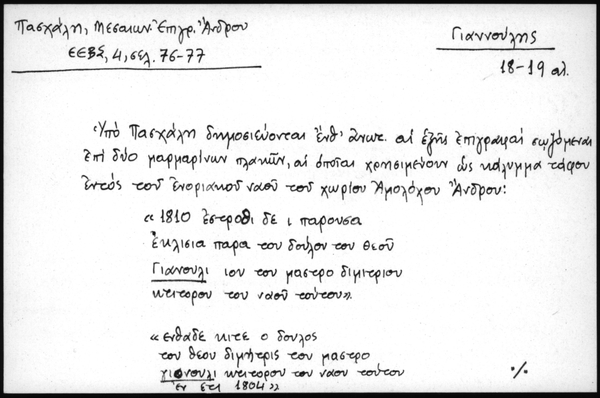 Πασχάλη, Μεσαιων. Ἐπιγρ. Ἄνδρου
ΕΕΒΣ, 4, σελ. 76-77
Γιαννούλης
18-19 αἰ.
Ὑπό Πασχάλη δημοσιεύονται ἔνθ' ἄνωτ. αἱ ἑξῆς ἐπιγραφαί σωζόμεναι
ἐπί δύο μαρμαρίνων πλακῶν, αἱ ὁποῖαι χρησιμεύουν ὡς κάλυμμα τάφου
ἐντός τοῦ ἐνοριακοῦ ναοῦ τοῦ χωρίου Ἀμολόχου Ἄνδρου:
« 1810 ἐστρο̣θι δε ι παρουσα
ἐκλισια παρα του δούλου του θεοῦ
Γιανουλι ιου του μαστρο διμιτριου
κτιτορου του ναοῦ τούτου».
« ενθαδε κιτε ο δουλος
του θεου διμήτρις του μαστρο
γιανουλι κτιτορου του ναου τούτου
ἐν ετι 1804»
%